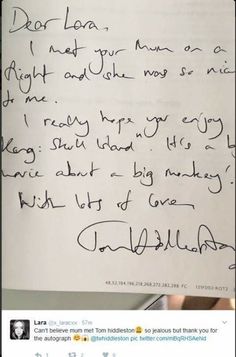 Dear Lara,
I met your Mum on a
flight and she was so nic
to me.
I really hope you enjoy
Kong: Skull Island". It's a b
movie about a big monkey'.
With lots of love
Tom Hiddleston
Lara @x_laracxx · 57m
Can't believe mum met Tom hiddleston😩 so jealous but thank you for
the autograph @twhiddleston pic twitter.com/mBqRHSAeNd